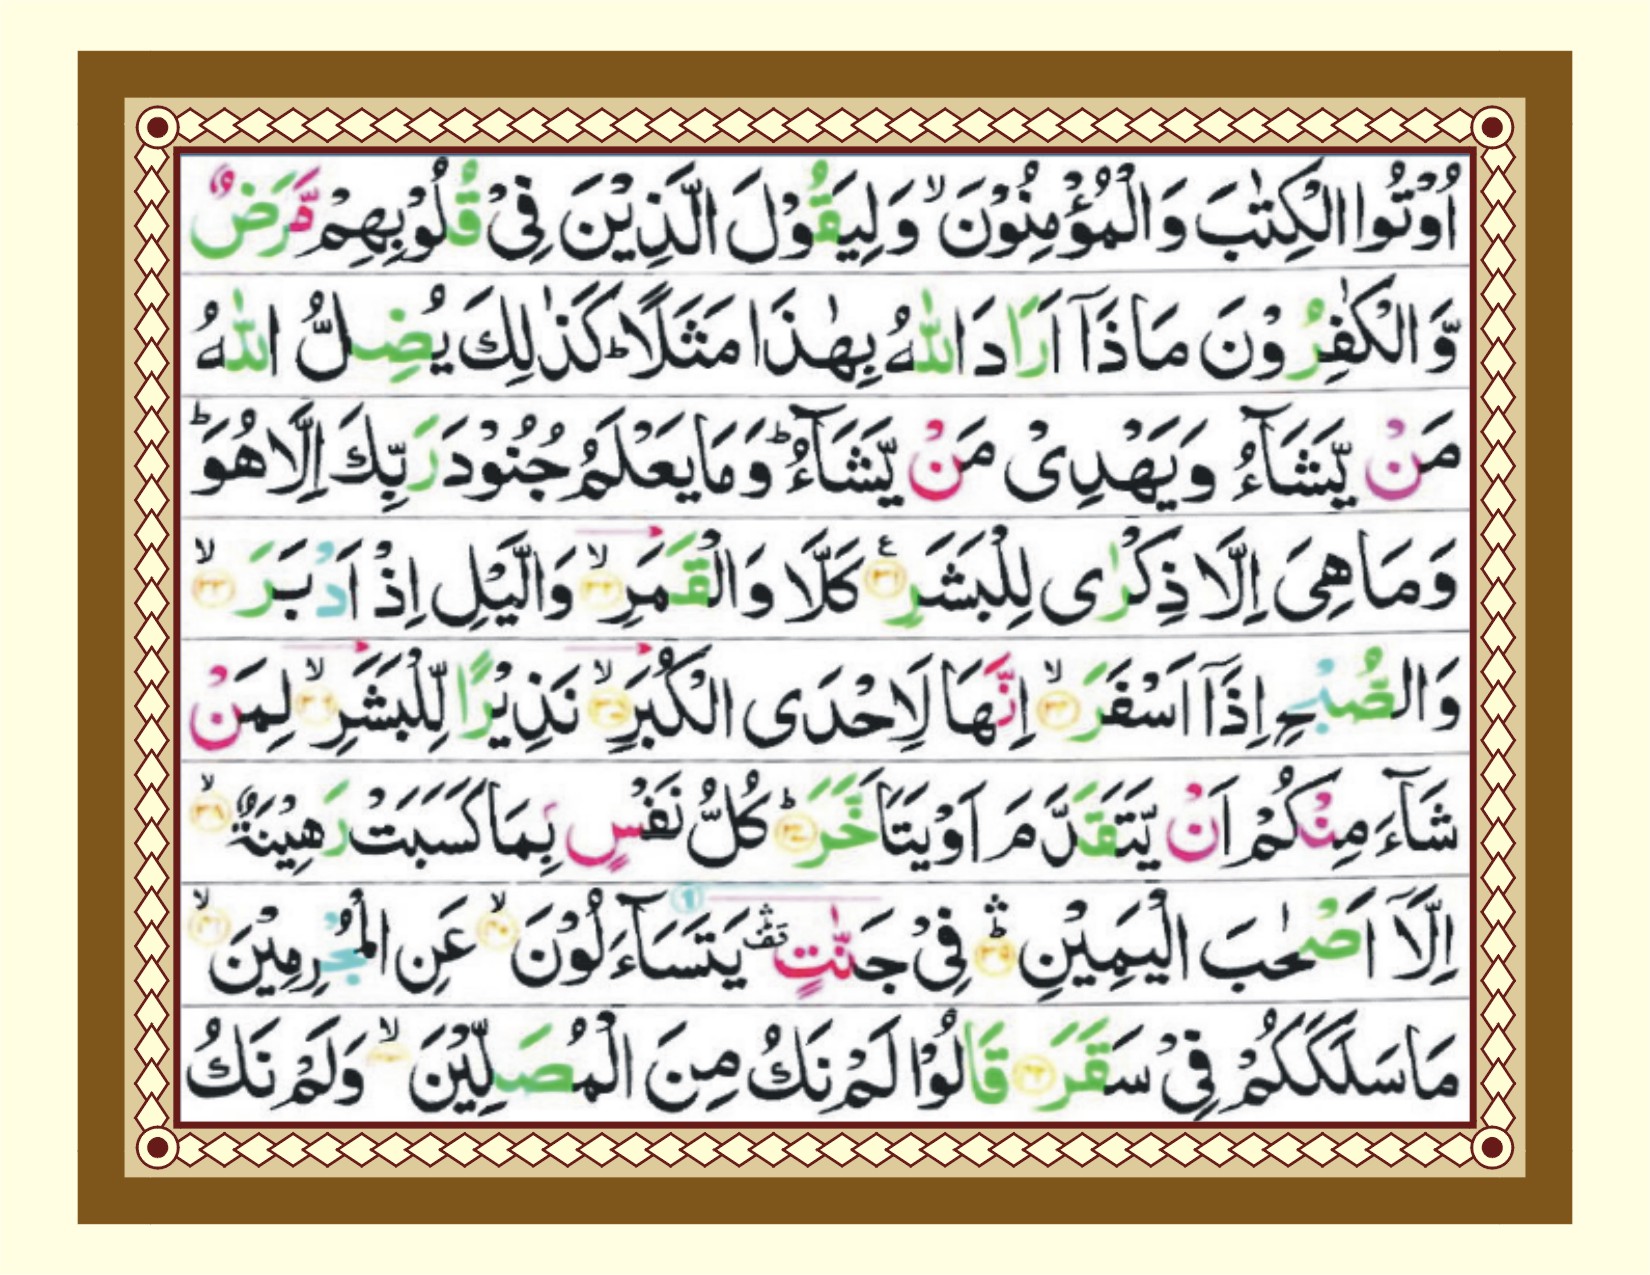 اُوْتُوا الْكِتٰبَ وَ الْمُؤْمِنُوْنَ ۙ وَ لِيَقُوْلَ الَّذِيْنَ فِیْ قُلُوْبِهِمْ مَّرَضٌ
وَّ الْكٰفِرُوْنَ مَا ذَاۤ اَرَادَ اللّٰهُ بِهٰذَا مَثَلًا ؕ كَذٰلِكَ يُضِلُّ اللّٰهُ
مَنْ يَّشَآءُ وَ يَهْدِیْ مَنْ يَّشَآءُ ؕ وَ مَا يَعْلَمُ جُنُوْدَ رَبِّكَ اِلَّا هُوَ ؕ
وَ مَا هِیَ اِلَّا ذِكْرٰی لِلْبَشَرِ ۧ﴿۳۱﴾ كَلَّا وَ الْقَمَرِ ۙ﴿۳۲﴾ وَ الَّيْلِ اِذْ اَدْبَرَ ۙ﴿۳۳﴾
وَ الصُّبْحِ اِذَاۤ اَسْفَرَ ۙ﴿۳۴﴾ اِنَّهَا لَاِحْدَی الْكُبَرِ ۙ﴿۳۵﴾ نَذِيْرًا لِّلْبَشَرِ ۙ﴿۳۶﴾ لِمَنْ
شَآءَ مِنْكُمْ اَنْ يَّتَقَدَّمَ اَوْ يَتَاَخَّرَ ؕ﴿۳۷﴾ كُلُّ نَفْسٍۭ بِمَا كَسَبَتْ رَهِيْنَةٌ ۙ﴿۳۸﴾
اِلَّاۤ اَصْحٰبَ الْيَمِيْنِ ؕۛ﴿۳۹﴾ فِیْ جَنّٰتٍ ۛ۟ يَتَسَآءَلُوْنَ ۙ﴿۴۰﴾ عَنِ الْمُجْرِمِيْنَ ۙ﴿۴۱﴾
مَا سَلَكَكُمْ فِیْ سَقَرَ ﴿۴۲﴾ قَالُوْا لَمْ نَكُ مِنَ الْمُصَلِّيْنَ ۙ﴿۴۳﴾ وَ لَمْ نَكُ